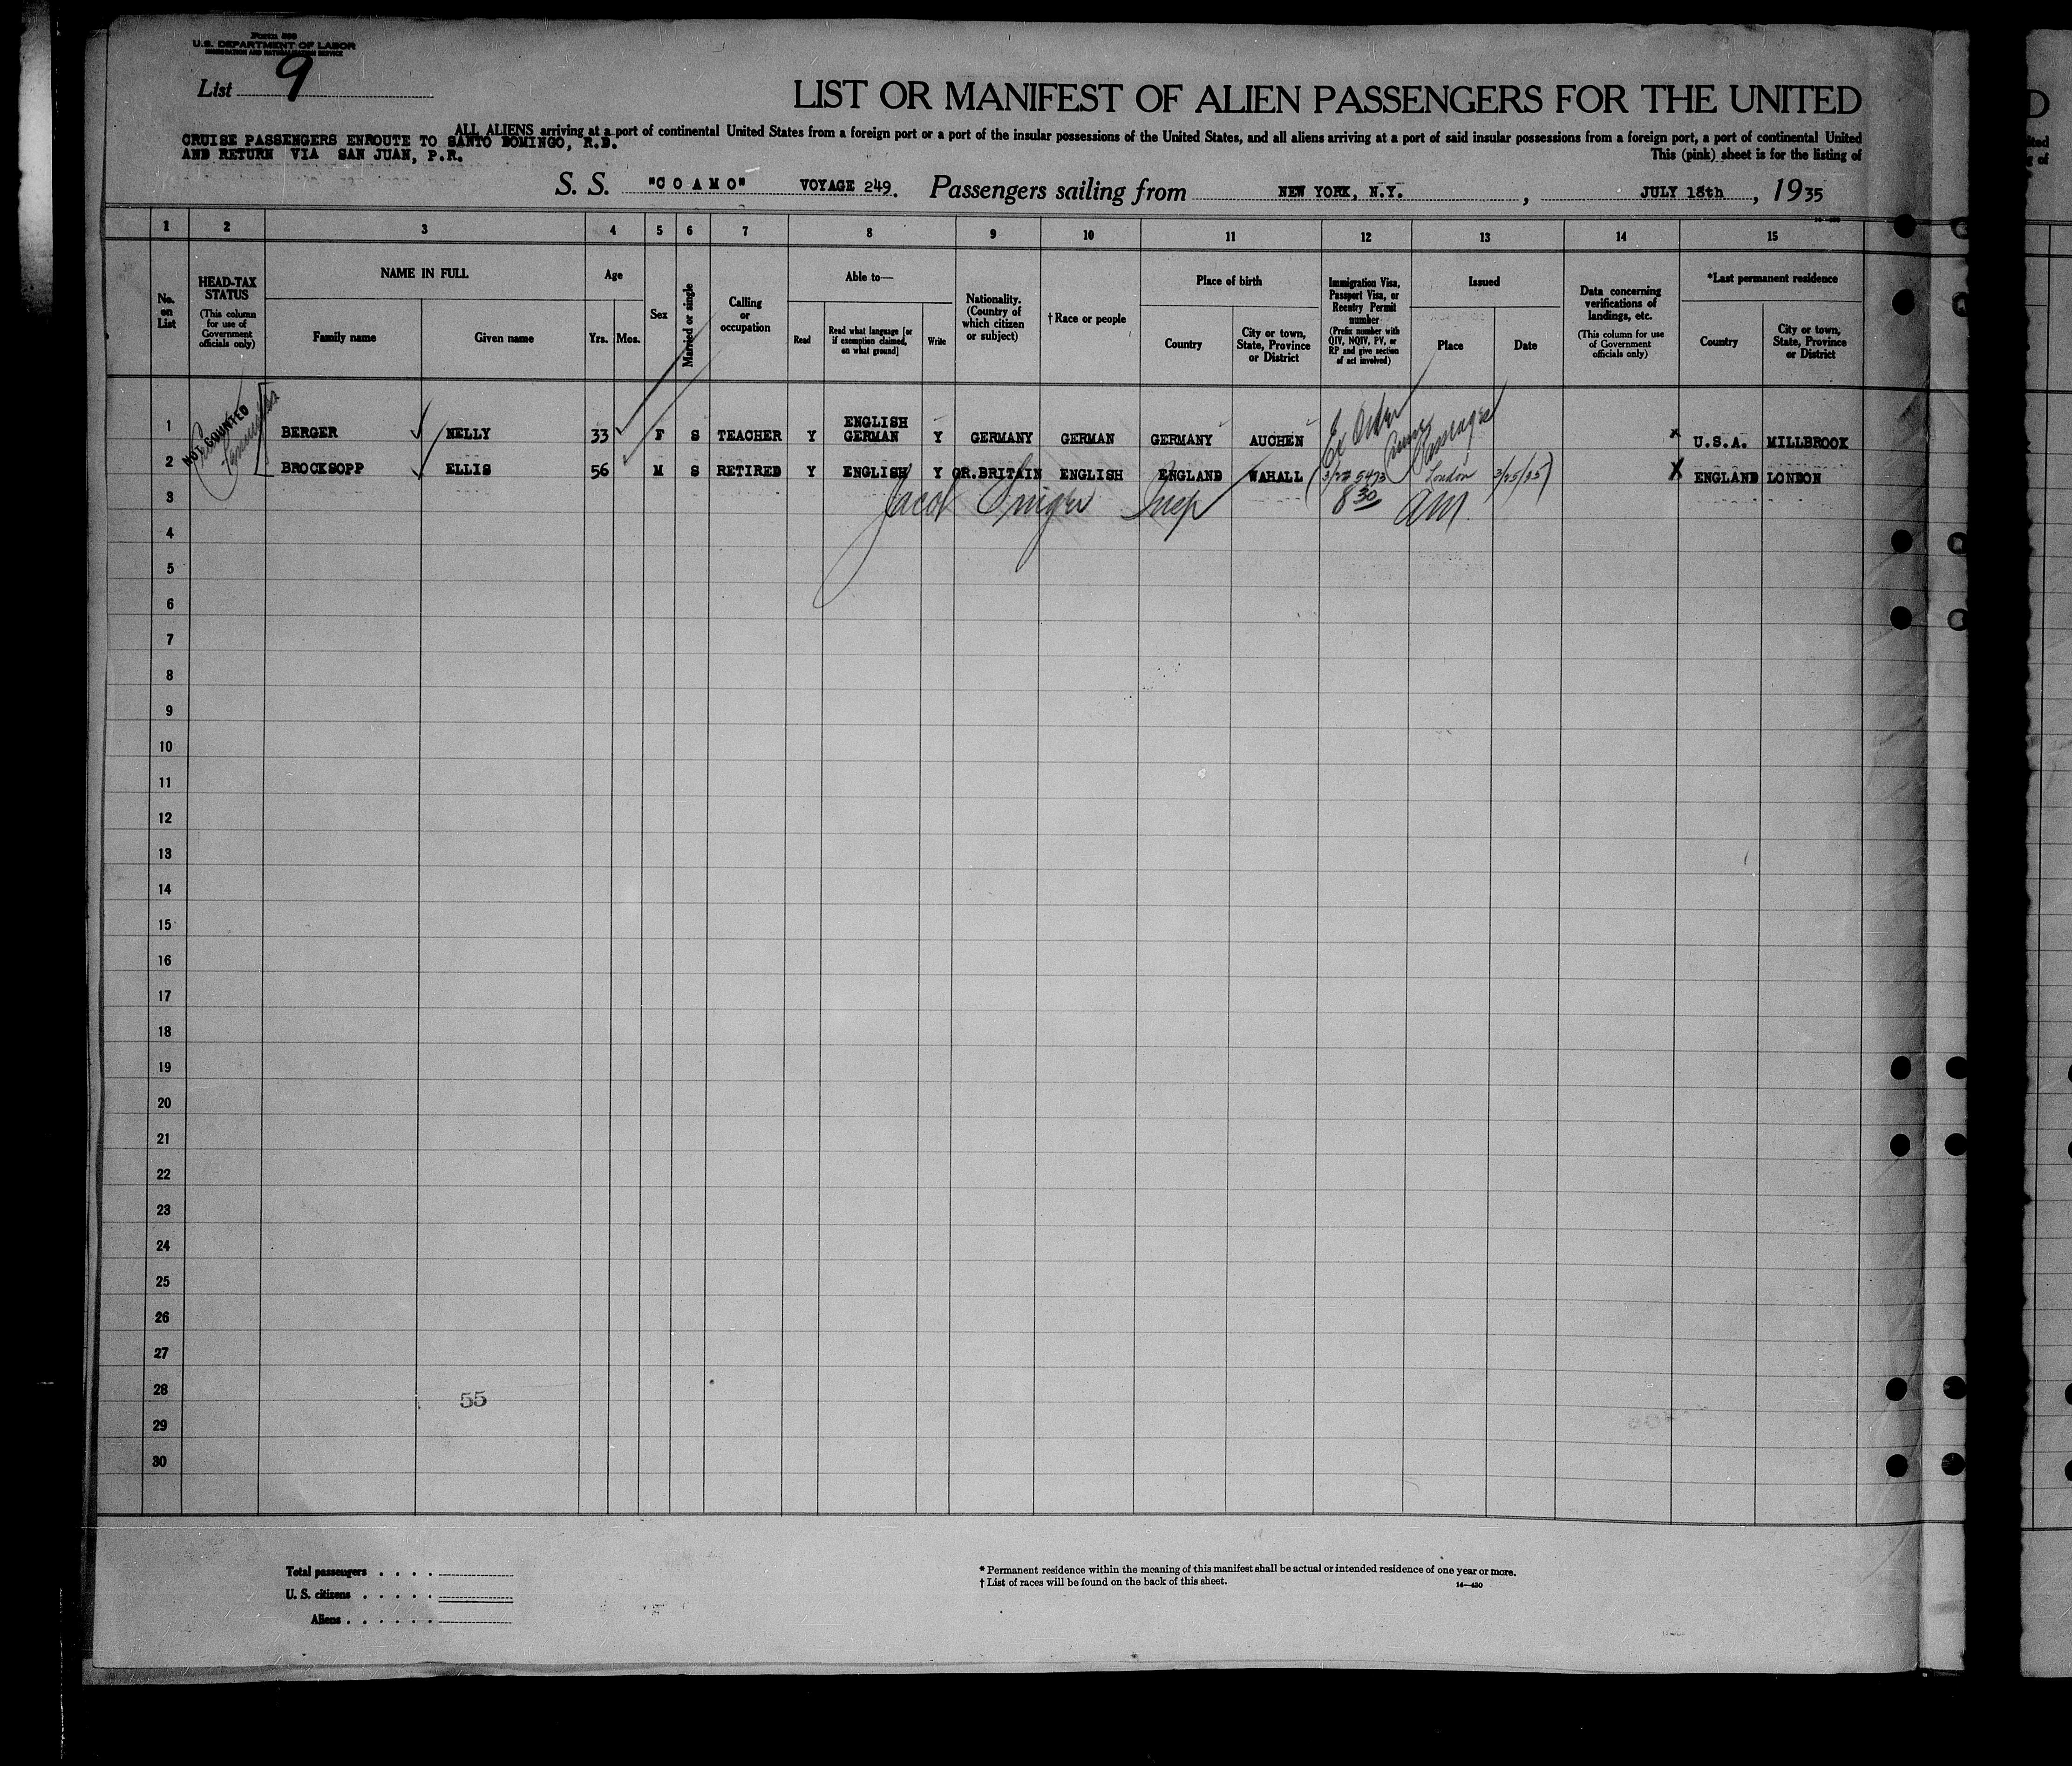 Form 500
U.S. DEPARTMENT OF LABOR
IMMIGRATION AND NATURALIZATION SERVICE
List 9
LIST OR MANIFEST OF ALIEN PASSENGERS FOR THE UNITED
ALL ALIENS arriving at a port of continental United States from a foreign port or a port of the insular possessions of the United States, and all aliens arriving at a port of said insular possessions from a foreign port, a port of continental United
CRUISE PASSENGERS ENROUTE TO SANTO DOMINGO, R.D.
AND RETURN VIA SAN JUAN, P.R.
This (pink) sheet is for the listing of
S. S. "COAMO" VOYAGE 249. Passengers sailing from NEW YORK, N.Y. , JULY 18th , 1935
1 2 3 4 5 6 7 8 9 10 11 12 13 14 15
No. on List
HEAD-TAX STATUS
(This column for use of Government officials only)
NAME IN FULL
Family name
Given name
Age
Yrs.
Mos.
Sex
Married or single
Calling or occupation
Able to—
Read
Read what language [or if exemption claimed, on what ground]
Write
Nationality. (Country of which citizen or subject)
†Race or people
Place of birth
Country
City or town, State, Province or District
Immigration Visa, Passport Visa, or Reentry Permit number
(Prefix number with QIV, NQIV, PV, or RP and give section of act involved)
Issued
Place
Date
Data concerning verifications of landings, etc.
(This column for use of Government officials only)
*Last permanent residence
Country
City or town, State, Province or District
NOT COUNTED
1 BERGER NELLY 33 F S TEACHER Y ENGLISH GERMAN Y GERMANY GERMAN GERMANY AUCHEN U.S.A. MILLBROOK
2 BROCKSOPP ELLIS 56 M S RETIRED Y ENGLISH Y GR.BRITAIN ENGLISH ENGLAND WAHALL London 3/25/35 X ENGLAND LONDON
3 Jacob Insp 8 30 AM
4
5
6
7
8
9
10
11
12
13
14
15
16
17
18
19
20
21
22
23
24
25
26
27
28
55
29
30
Total passengers
U. S. citizens
Aliens
* Permanent residence within the meaning of this manifest shall be actual or intended residence of one year or more.
† List of races will be found on the back of this sheet.
14—430